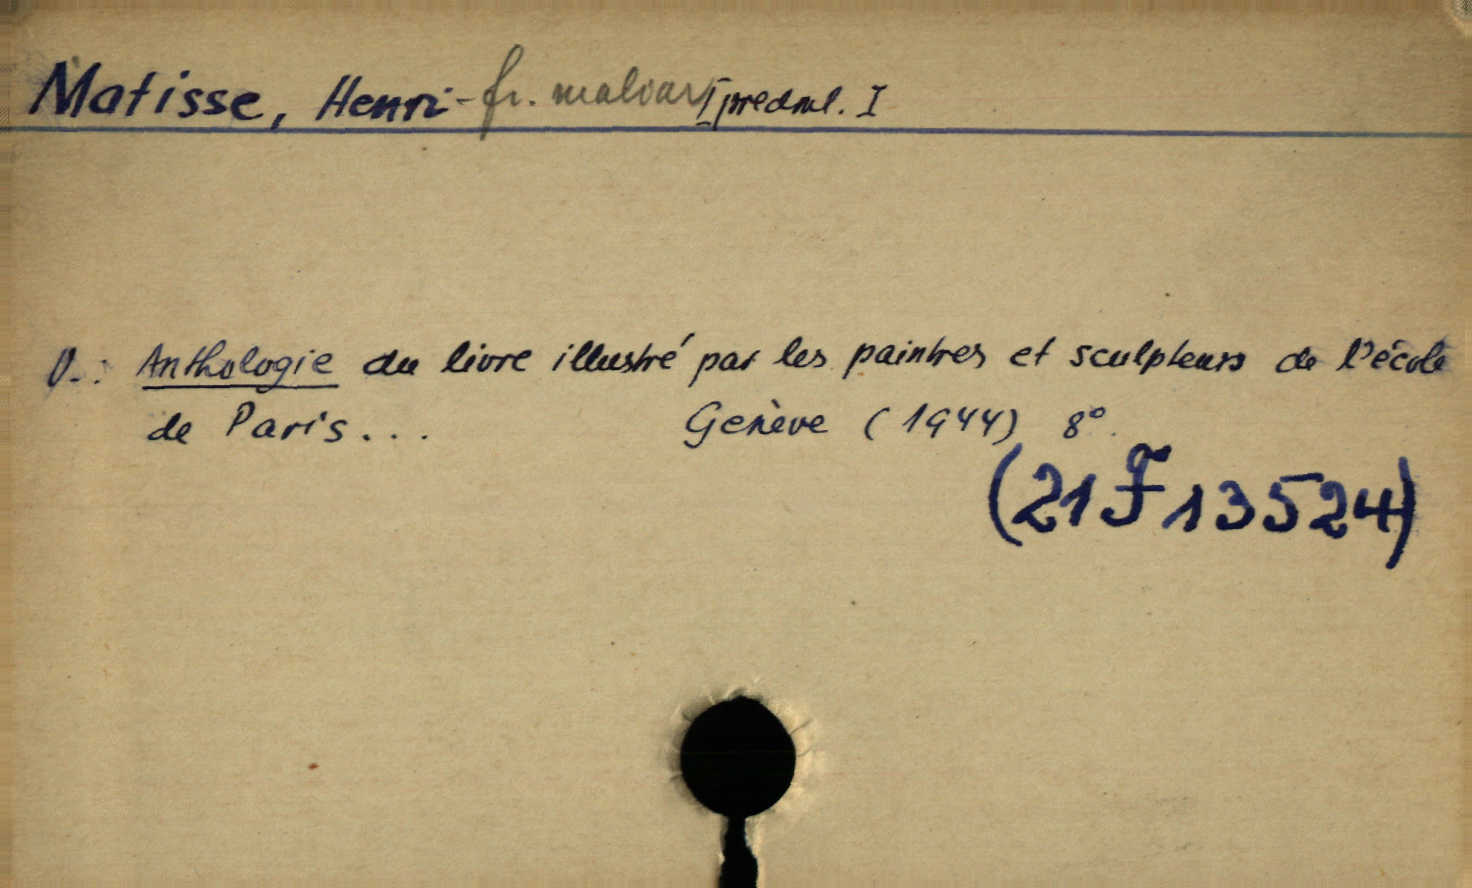 Matisse, Henri - fr. malíař [předml. I
V.: Anthologie du livre illustré par les peintres et sculpteurs de l'école
de Paris... Genève (1944) 8°.
(21 F 13524)